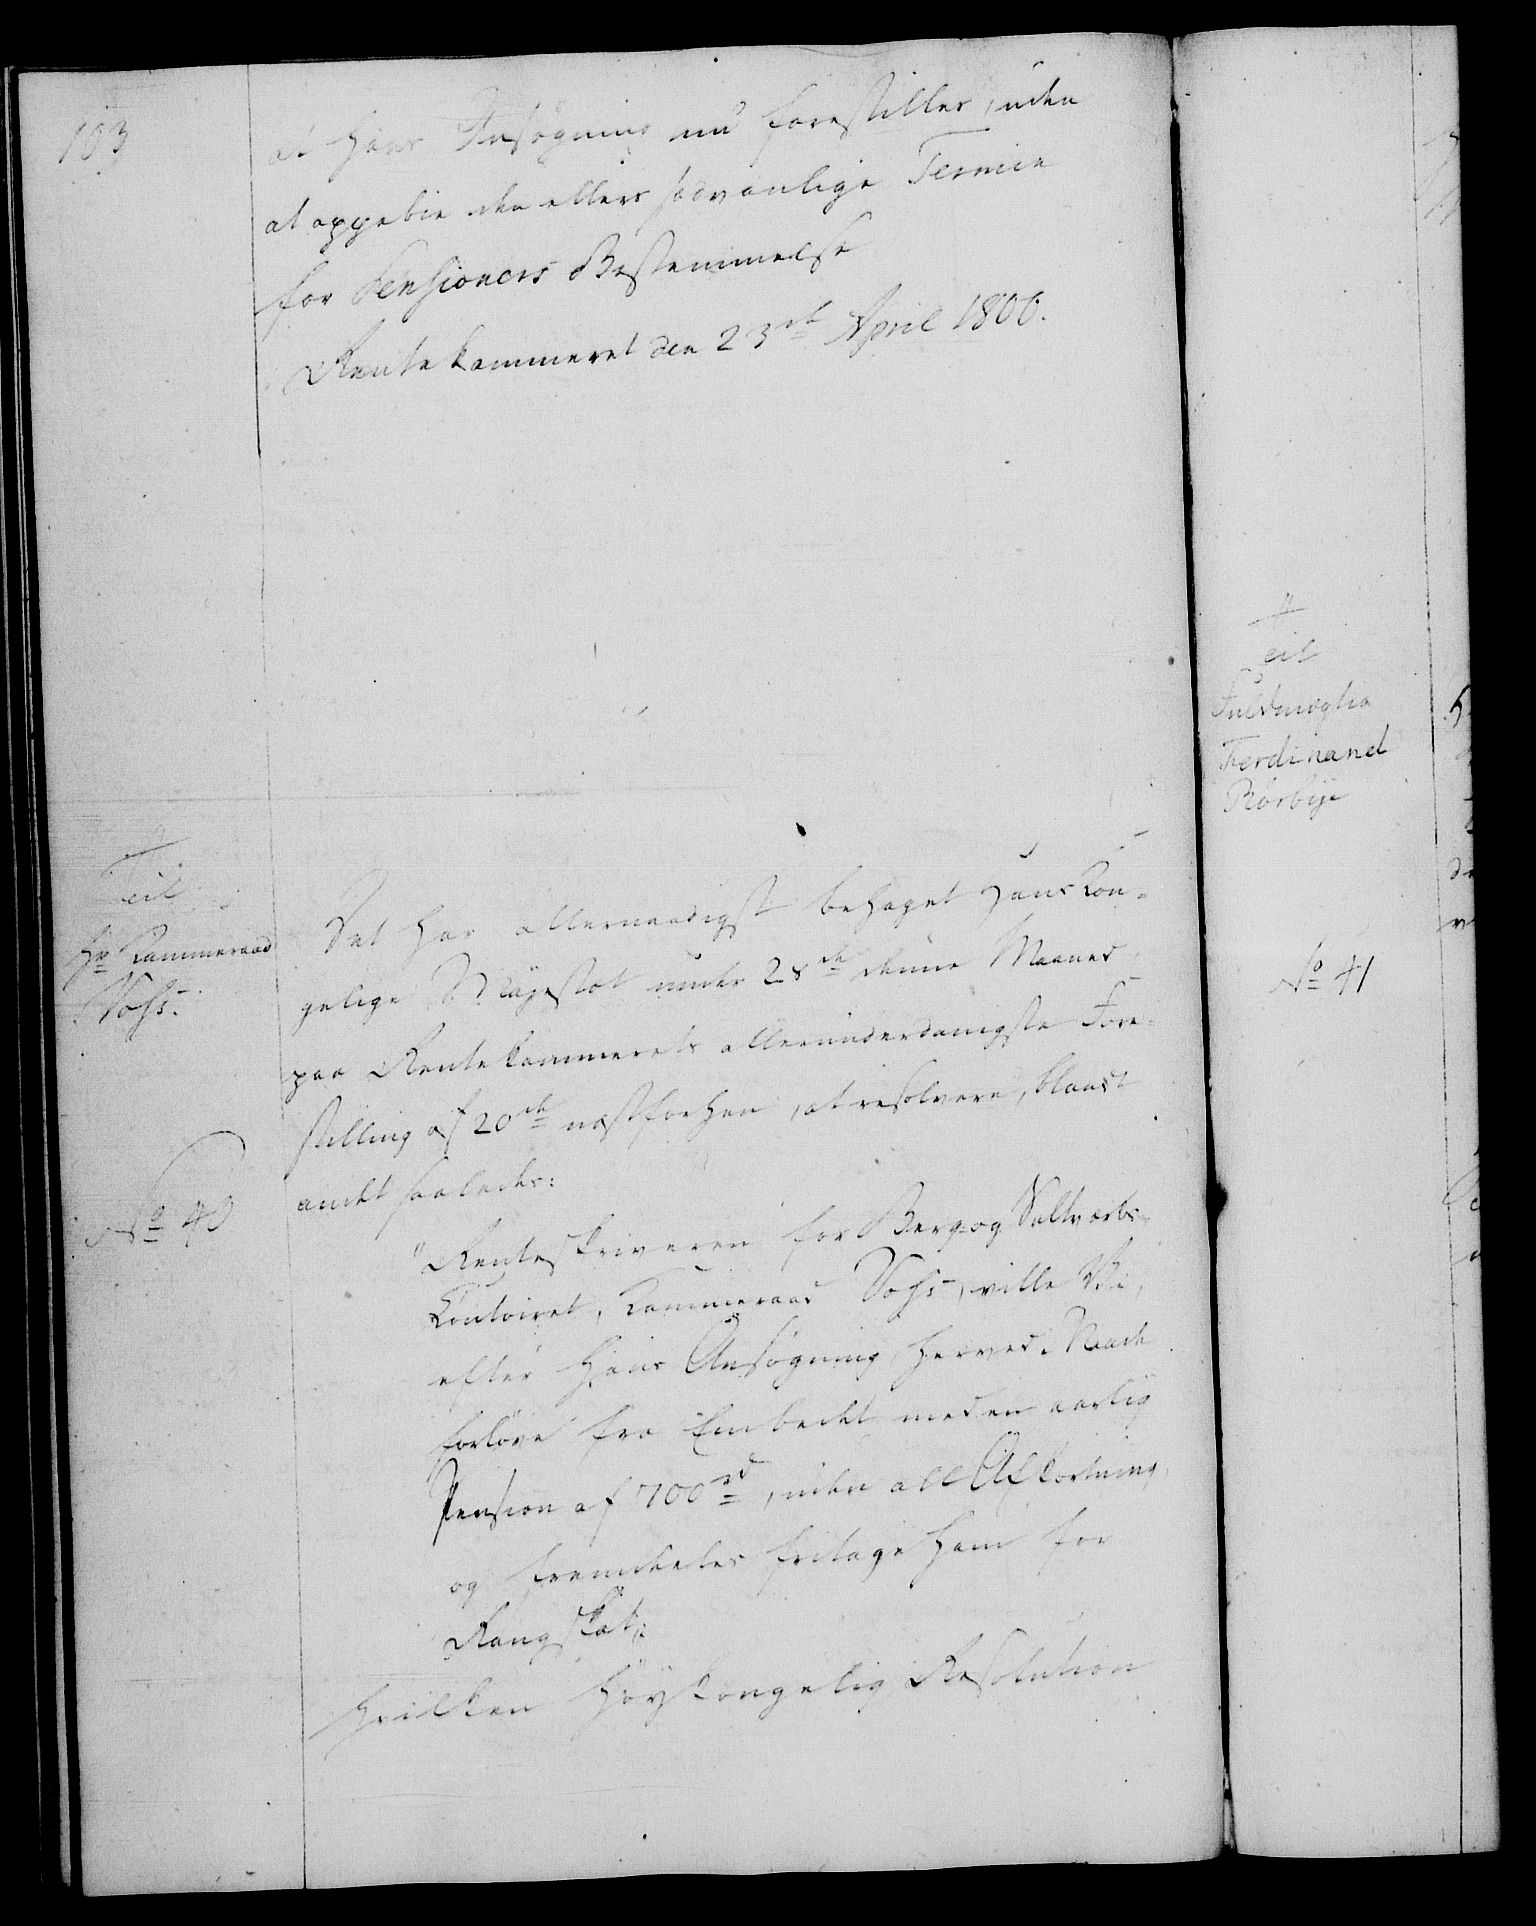 103
at hans Ansøgning nu forestilles, uden
at oppebie den ellers sædvanlige Termin
for Pensioners Bestemmelse
Rentekammeret den 23de April 1806.
Til
Hr Kammeraad
Vohs.
No 40
Det har allernaadigst behaget Hans Kon-
gelige Mayestæt under 28de denne Maaned
paa Rentekammerets allerunderdanigste Fore-
stilling af 20de næstforhen, at resolvere, blandt
andet saaledes:
"Renteskriveren for Berg- og Saltværks-
Contoiret, Kammeraad Vohs, ville Vi,
efter hans Ansøgning, herved i Naade
forløve fra Embedet med en aarlig
Pension af 700 rd, uden all Afkortning,
og fremdeles fritage ham for
Rangskat;
hvilken høykongelig Resolution
Til
Fuldmægtig
Ferdinand
Rørbye
No 41